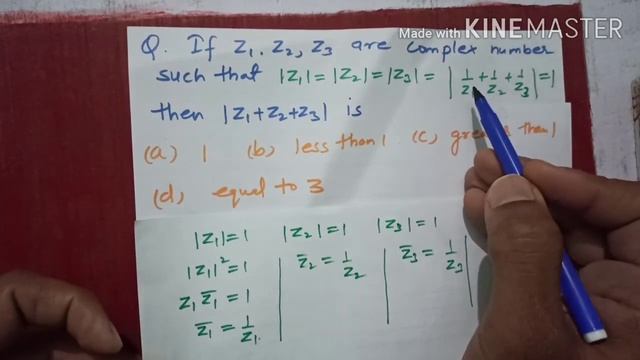 Made with KINEMASTER
Q. If Z₁, Z₂, Z₃ are complex number
such that |Z₁| = |Z₂| = |Z₃| = |1/Z₁ + 1/Z₂ + 1/Z₃| = 1
then |Z₁+Z₂+Z₃| is
(a) 1 (b) less than 1 (c) than 1
(d) equal to 3
|Z₁| = 1 |Z₂| = 1 |Z₃| = 1
|Z₁|² = 1 z̄₂ = 1/Z₂ z̄₃ = 1/Z₃
Z₁ z̄₁ = 1
z̄₁ = 1/Z₁